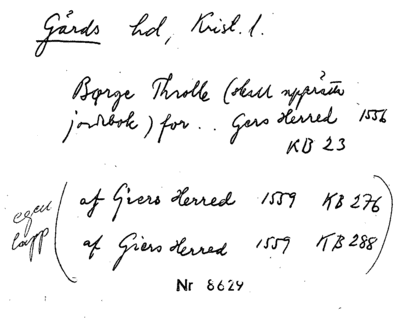 Gårds hd, Krist. l.
Børge Throlle (skall upprätta
jordebok) for .. Gers Herred 1556
KB 23
egen
lapp
af Giers Herred 1559 KB 276
af Giers Herred 1559 KB 288
Nr 8629